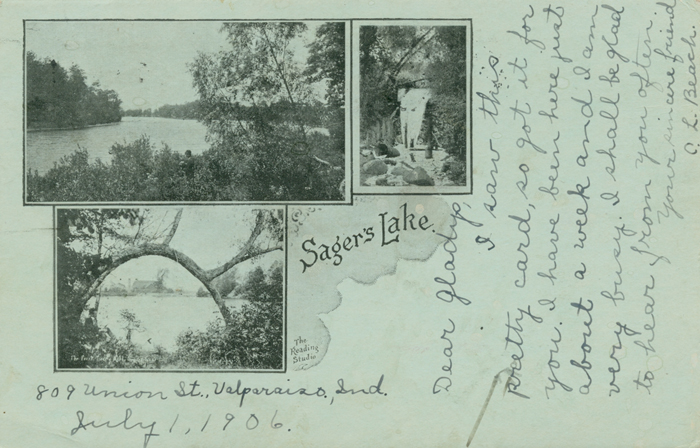 Sager's Lake.
The
Reading
Studio
809 Union St., Valparaiso, Ind.
July 1, 1906.
Dear Gladys,
I saw this
pretty card, so got it for
you. I have been here just
about a week and I am
very busy. I shall be glad
to hear from you often.
Your sincere friend
C. L. Beach.